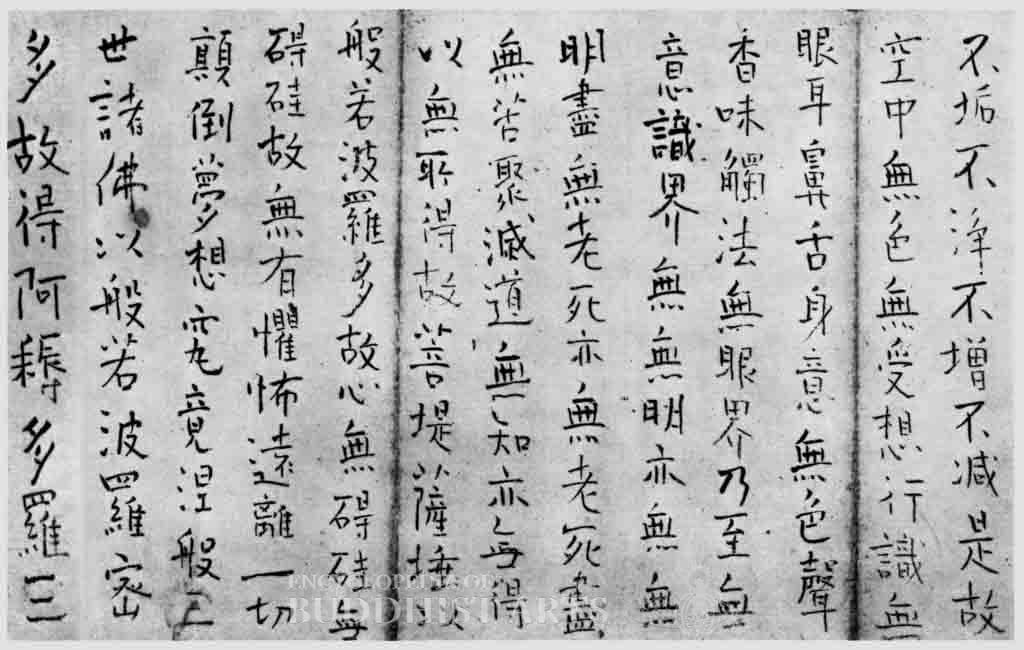 不垢不淨不增不減是故
空中無色無受想行識無
眼耳鼻舌身意無色聲
香味觸法無眼界乃至無
意識界無無明亦無無
明盡無老死亦無老死盡
無苦聚滅道無知亦無得
以無所得故菩提薩埵以
般若波羅多故心無碍硅無
碍硅故無有懼怖遠離一切
顛倒夢想究竟涅般三
世諸佛以般若波羅密
多故得阿耨多羅三
ENCYCLOPEDIA OF
BUDDHIST ARTS